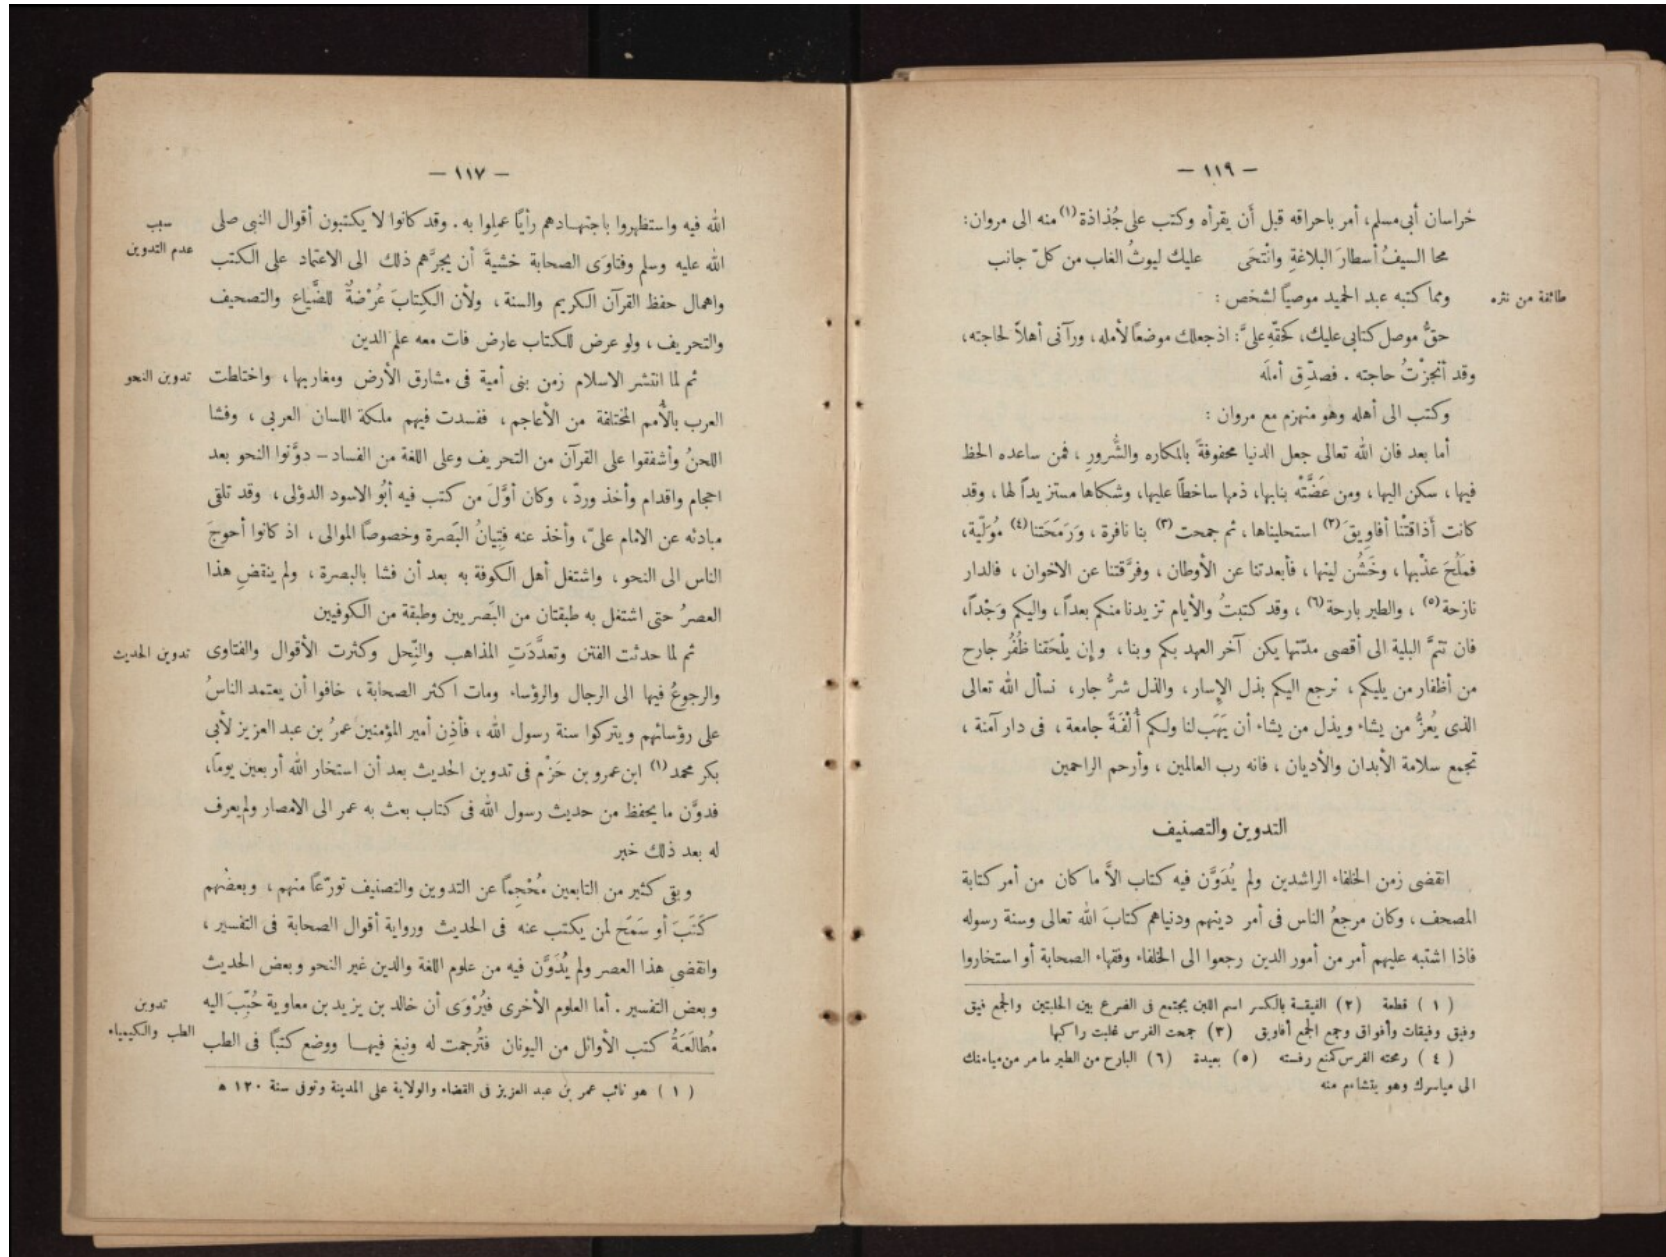 — ١١٩ —
خراسان أبى مسلم، أمر باحراقه قبل أن يقرأه وكتب على جُذاذة (١) منه الى مروان:
محا السيفُ أسطارَ البلاغةِ وانْتحَى عليك ليوثُ الغاب من كلّ جانب
طائفة من نثره
ومما كتبه عبد الحميد موصياً لشخص :
حقُّ موصل كتابى عليك، كحقّهِ علىَّ: اذ جعلك موضعاً لأمله، ورآنى أهلاً لحاجته،
وقد أنجزْتُ حاجته . فصدِّق أملَه
وكتب الى أهله وهو منهزم مع مروان :
أما بعد فان الله تعالى جعل الدنيا محفوفةً بالمكاره والشُّرورِ ، فمن ساعده الحظ
فيها ، سكن اليها ، ومن عَضَّتْه بنابها، ذمها ساخطاً عليها، وشكاها مستزيداً لها ، وقد
كانت أَذاقتْنا أفاوِيقَ (٢) استحليناها ، ثم جمحت (٣) بنا نافرة ، وَرَمَحَتنا (٤) مُوَلّية،
فمَلُحَ عذْبها ، وخَشُن لينها ، فأبعدتنا عن الأوطان ، وفرَّقتنا عن الاخوان ، فالدار
نازحة (٥) ، والطير بارحة (٦) ، وقد كتبتُ والأيام تزيدنا منكم بعداً، واليكم وَجْداً،
فان تتمَّ البلية الى أقصى مدّتها يكن آخر العهد بكم وبنا ، وإن يلْحَقنا ظُفُرٌ جارح
من أظفار من يليكم ، نرجع اليكم بذل الإسار ، والذل شرُّ جار ، نسأل الله تعالى
الذى يُعزُّ من يشاء ويذل من يشاء أن يَهَب لنا ولكم أُلْفَةً جامعة ، فى دار آمنة ،
تجمع سلامة الأبدان والأديان ، فانه رب العالمين ، وأرحم الراحمين
التدوين والتصنيف
انقضى زمن الخلفاء الراشدين ولم يُدَوَّن فيه كتاب الاَّ ما كان من أمر كتابة
المصحف ، وكان مرجعُ الناس فى أمر دينهم ودنياهم كتابَ الله تعالى وسنة رسوله
فاذا اشتبه عليهم أمر من أمور الدين رجعوا الى الخلفاء وفقهاء الصحابة أو استخاروا
( ١ ) قطعة (٢) الفيقة بالكسر اسم اللبن يجتمع فى الضرع بين الحلبتين والجمع فيق
وفيق وفيقات وأفواق وجمع الجمع أفاويق (٣) جمحت الفرس غلبت راكبها
( ٤ ) رمحته الفرس كمنع رفسته (٥) بعيدة (٦) البارح من الطير ما مر من ميامنك
الى مياسرك وهو يتشاءم منه
— ١١٧ —
الله فيه واستظهروا باجتهادهم رأيًا عملوا به . وقد كانوا لا يكتبون أقوال النبى صلى
سبب
عدم التدوين
الله عليه وسلم وفتاوَى الصحابة خشيةَ أن يجرَّهم ذلك الى الاعتماد على الكتب
واهمال حفظ القرآن الكريم والسنة ، ولأن الكِتابَ عُرْضةٌ للضَّياع والتصحيف
والتحريف ، ولو عرض للكتاب عارض فات معه علم الدين
تدوين النحو
ثم لما انتشر الاسلام زمن بنى أمية فى مشارق الأرض ومغاربها ، واختلطت
العرب بالأُمم المختلفة من الأعاجم ، ففسدت فيهم ملكة اللسان العربى ، وفشا
اللحنُ وأشفقوا على القرآن من التحريف وعلى اللغة من الفساد – دوَّنوا النحو بعد
احجام واقدام وأخذ وردّ ، وكان أوَّلَ من كتب فيه أبُو الاسود الدؤلى ، وقد تلقى
مبادئه عن الامام علىّ، وأخذ عنه فِتِيانُ البَصرة وخصوصًا الموالى ، اذ كانوا أحوجَ
الناس الى النحو ، واشتغل أهل الكوفة به بعد أن فشا بالبصرة ، ولم ينقضِ هذا
العصرُ حتى اشتغل به طبقتان من البَصريين وطبقة من الكوفيين
تدوين الحديث
ثم لما حدثت الفتن وتعدَّدَتِ المذاهب والنِّحل وكثرت الأقوال والفتاوى
والرجوعُ فيها الى الرجال والرؤساء ومات اكثر الصحابة ، خافوا أن يعتمد الناسُ
على رؤسائهم ويتركوا سنة رسول الله ، فأذِن أمير المؤمنين عمرُ بن عبد العزيز لأبى
بكر محمد (١) ابن عمرو بن حَزْم فى تدوين الحديث بعد أن استخار الله أربعين يوماً،
فدوَّن ما يحفظ من حديث رسول الله فى كتاب بعث به عمر الى الامصار ولم يعرف
له بعد ذلك خبر
وبقى كثير من التابعين مُحْجِماً عن التدوين والتصنيف تورّعاً منهم ، وبعضُهم
كَتَبَ أو سَمَحَ لمن يكتب عنه فى الحديث ورواية أقوال الصحابة فى التفسير ،
وانقضى هذا العصر ولم يُدَوَّن فيه من علوم اللغة والدين غير النحو وبعض الحديث
تدوين
الطب والكيمياء
وبعض التفسير . أما العلوم الأخرى فيُرْوَى أن خالد بن يزيد بن معاوية حُبِّبَ اليه
مُطالَعَةُ كتب الأوائل من اليونان فتُرجمت له ونبغ فيها ووضع كتبًا فى الطب
( ١ ) هو نائب عمر بن عبد العزيز فى القضاء والولاية على المدينة وتوفى سنة ١٢٠ ه